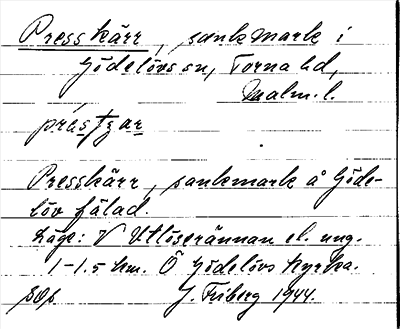 Presskärr, sankmark i
Gödelövs sn, Torna hd,
Malm. l.
Presskärr, sankmark å Göde-
löv fälad.
Läge: V Utlöserännan el. ung.
1-1.5 km. Ö Gödelövs kyrka.
J. Friberg 1944.